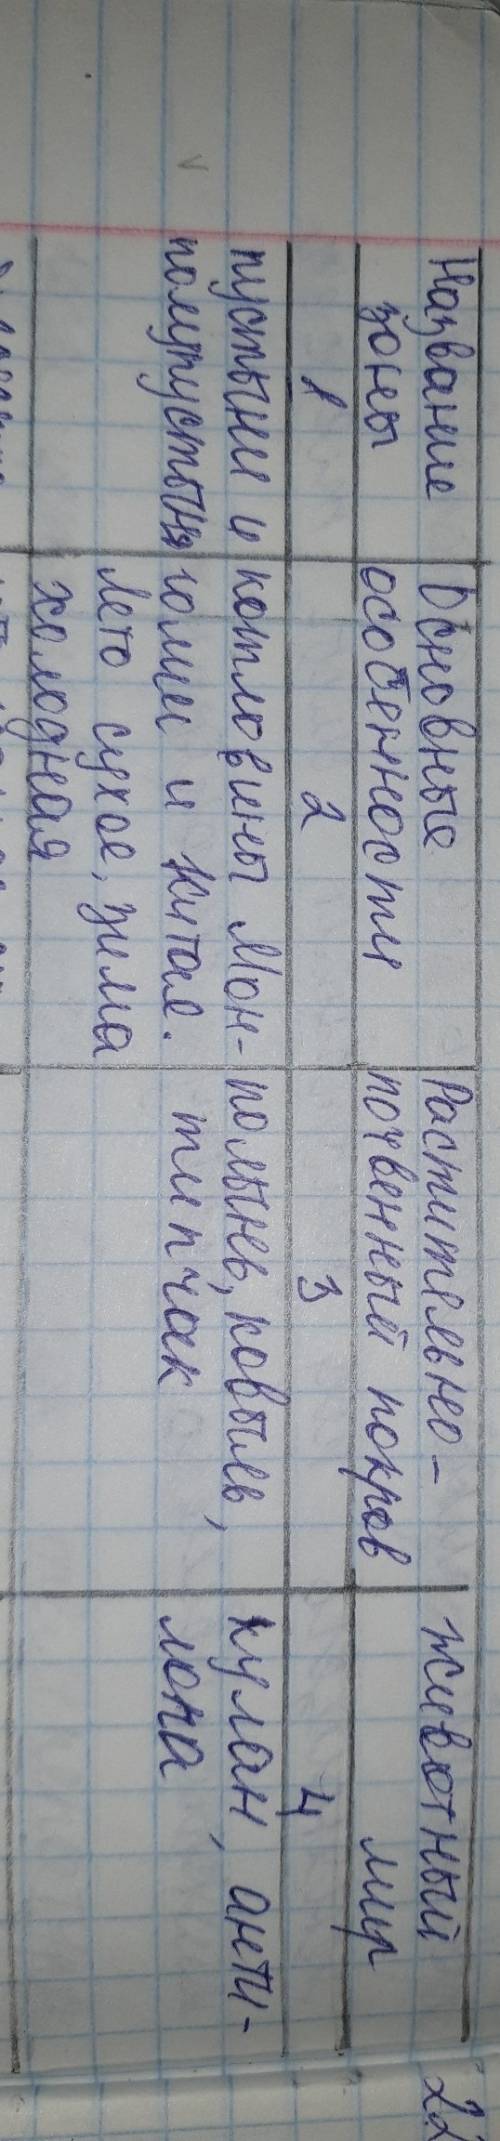 Название зоны
Основные особенности
Растительно-почвенный покров
Животный мир
1
2
3
4
пустыни и
полупустыня
котловины Мон-
голии и Китае.
Лето сухое, зима
холодная
полынь, ковыль,
типчак
кулан, анти-
лопа
22